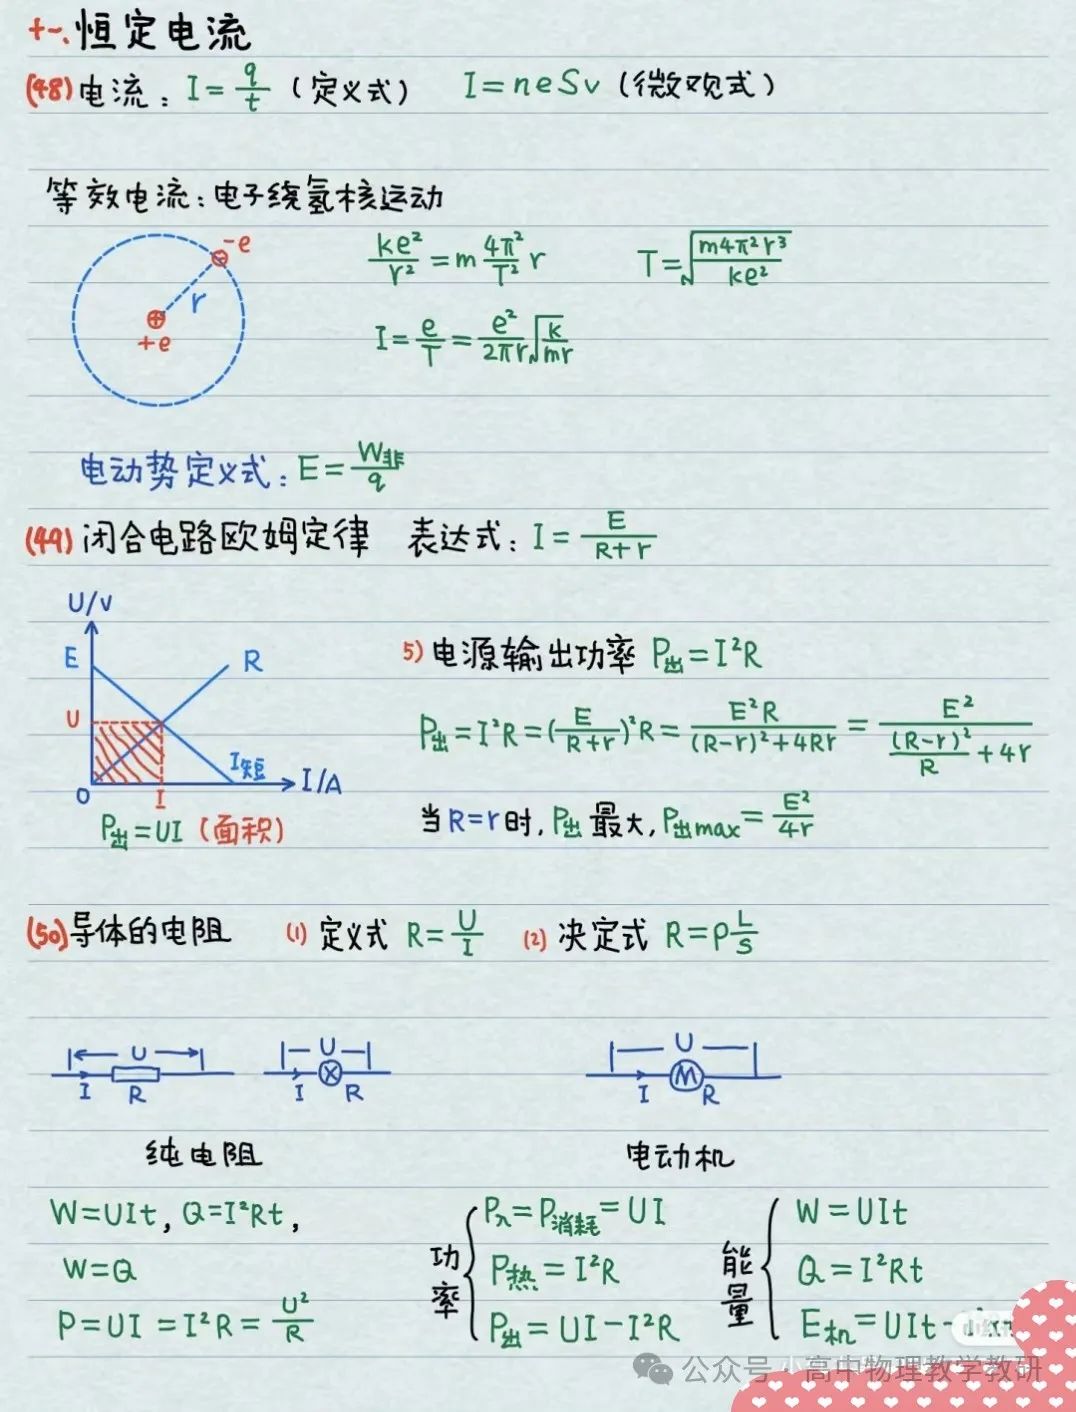 十一、恒定电流
(48) 电流：I=q/t（定义式） I=neSv（微观式）
等效电流：电子绕氢核运动
-e
r
+e
ke²/r²=m 4π²/T² r T=√(m4π²r³/ke²)
I=e/T=e²/2πr √(k/mr)
电动势定义式：E=W非/q
(49) 闭合电路欧姆定律 表达式：I=E/(R+r)
U/V
E
R
U
I短
O
I
I/A
P出=UI（面积）
5) 电源输出功率 P出=I²R
P出=I²R=(E/(R+r))²R=E²R/((R-r)²+4Rr)=E²/((R-r)²/R+4r)
当R=r时，P出最大，P出max=E²/4r
(50) 导体的电阻 (1) 定义式 R=U/I (2) 决定式 R=ρL/S
U
I R
U
I R
U
I R
纯电阻
电动机
W=UIt，Q=I²Rt，
W=Q
P=UI=I²R=U²/R
功率
P入=P消耗=UI
P热=I²R
P出=UI-I²R
能量
W=UIt
Q=I²Rt
E机=UIt-
公众号·小高中物理教学教研